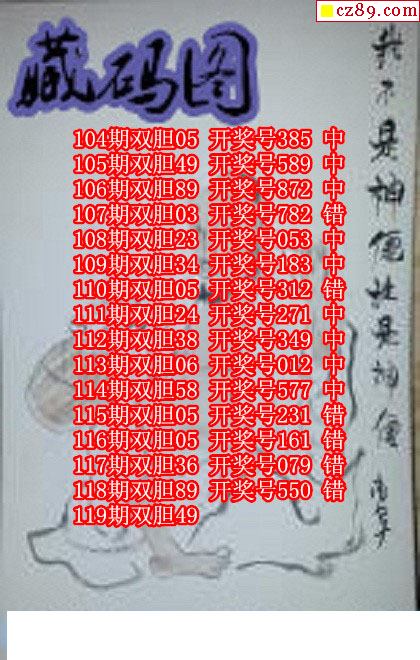 cz89.com
藏码图
104期双胆05 开奖号385 中
105期双胆49 开奖号589 中
106期双胆89 开奖号872 中
107期双胆03 开奖号782 错
108期双胆23 开奖号053 中
109期双胆34 开奖号183 中
110期双胆05 开奖号312 错
111期双胆24 开奖号271 中
112期双胆38 开奖号349 中
113期双胆06 开奖号012 中
114期双胆58 开奖号577 中
115期双胆05 开奖号231 错
116期双胆05 开奖号161 错
117期双胆36 开奖号079 错
118期双胆89 开奖号550 错
119期双胆49
我不是神仙
是神仙